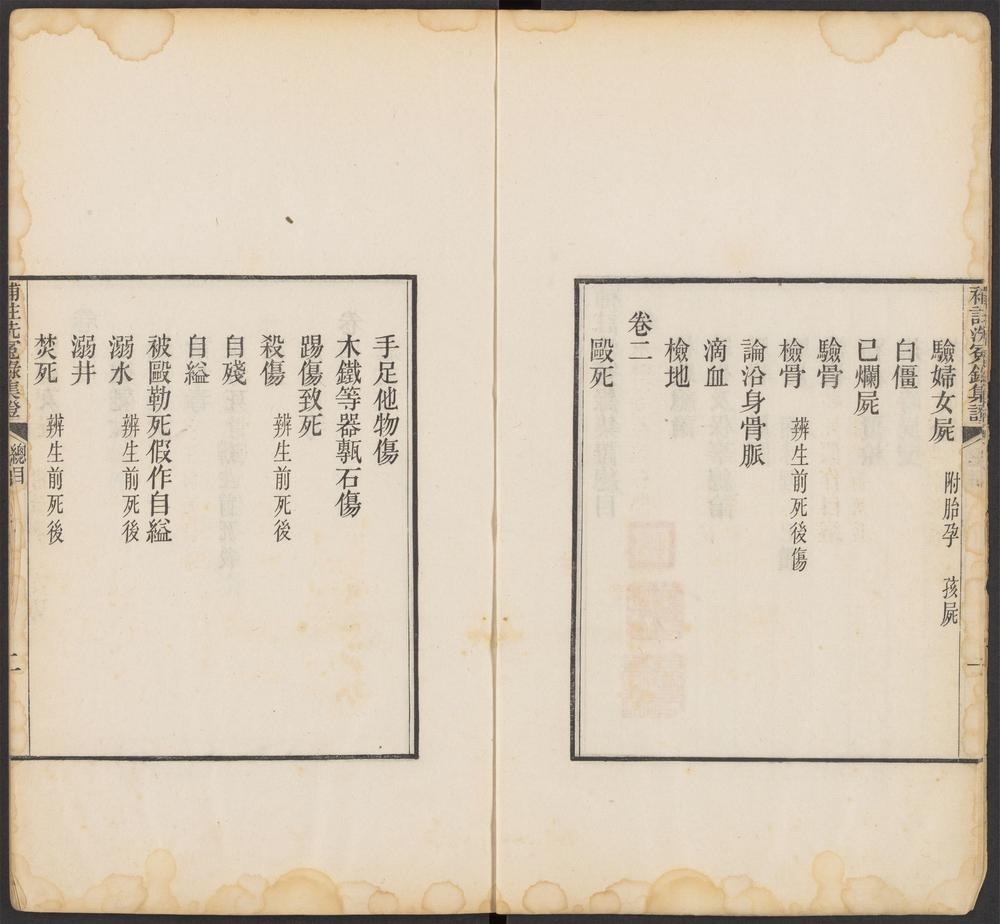 補註洗冤錄集證
一
驗婦女屍 附胎孕 孩屍
白僵
已爛屍
驗骨
檢骨 辨生前死後傷
論沿身骨脈
滴血
檢地
卷二
毆死
手足他物傷
木鐵等器甎石傷
踢傷致死
殺傷 辨生前死後
自殘
自縊
被毆勒死假作自縊
溺水 辨生前死後
溺井
焚死 辨生前死後
補註洗冤錄集證 總目 二